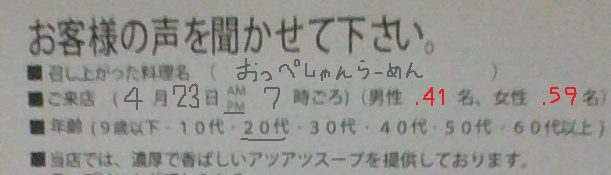 お客様の声を聞かせて下さい。
■召し上がった料理名 ( おっぺしゃんらーめん )
■ご来店 (4月23日 AM PM 7時ごろ) (男性 .41名、女性 .59名)
■年齢 (9歳以下・10代・20代・30代・40代・50代・60代以上)
■当店では、濃厚で香ばしいアツアツスープを提供しております。